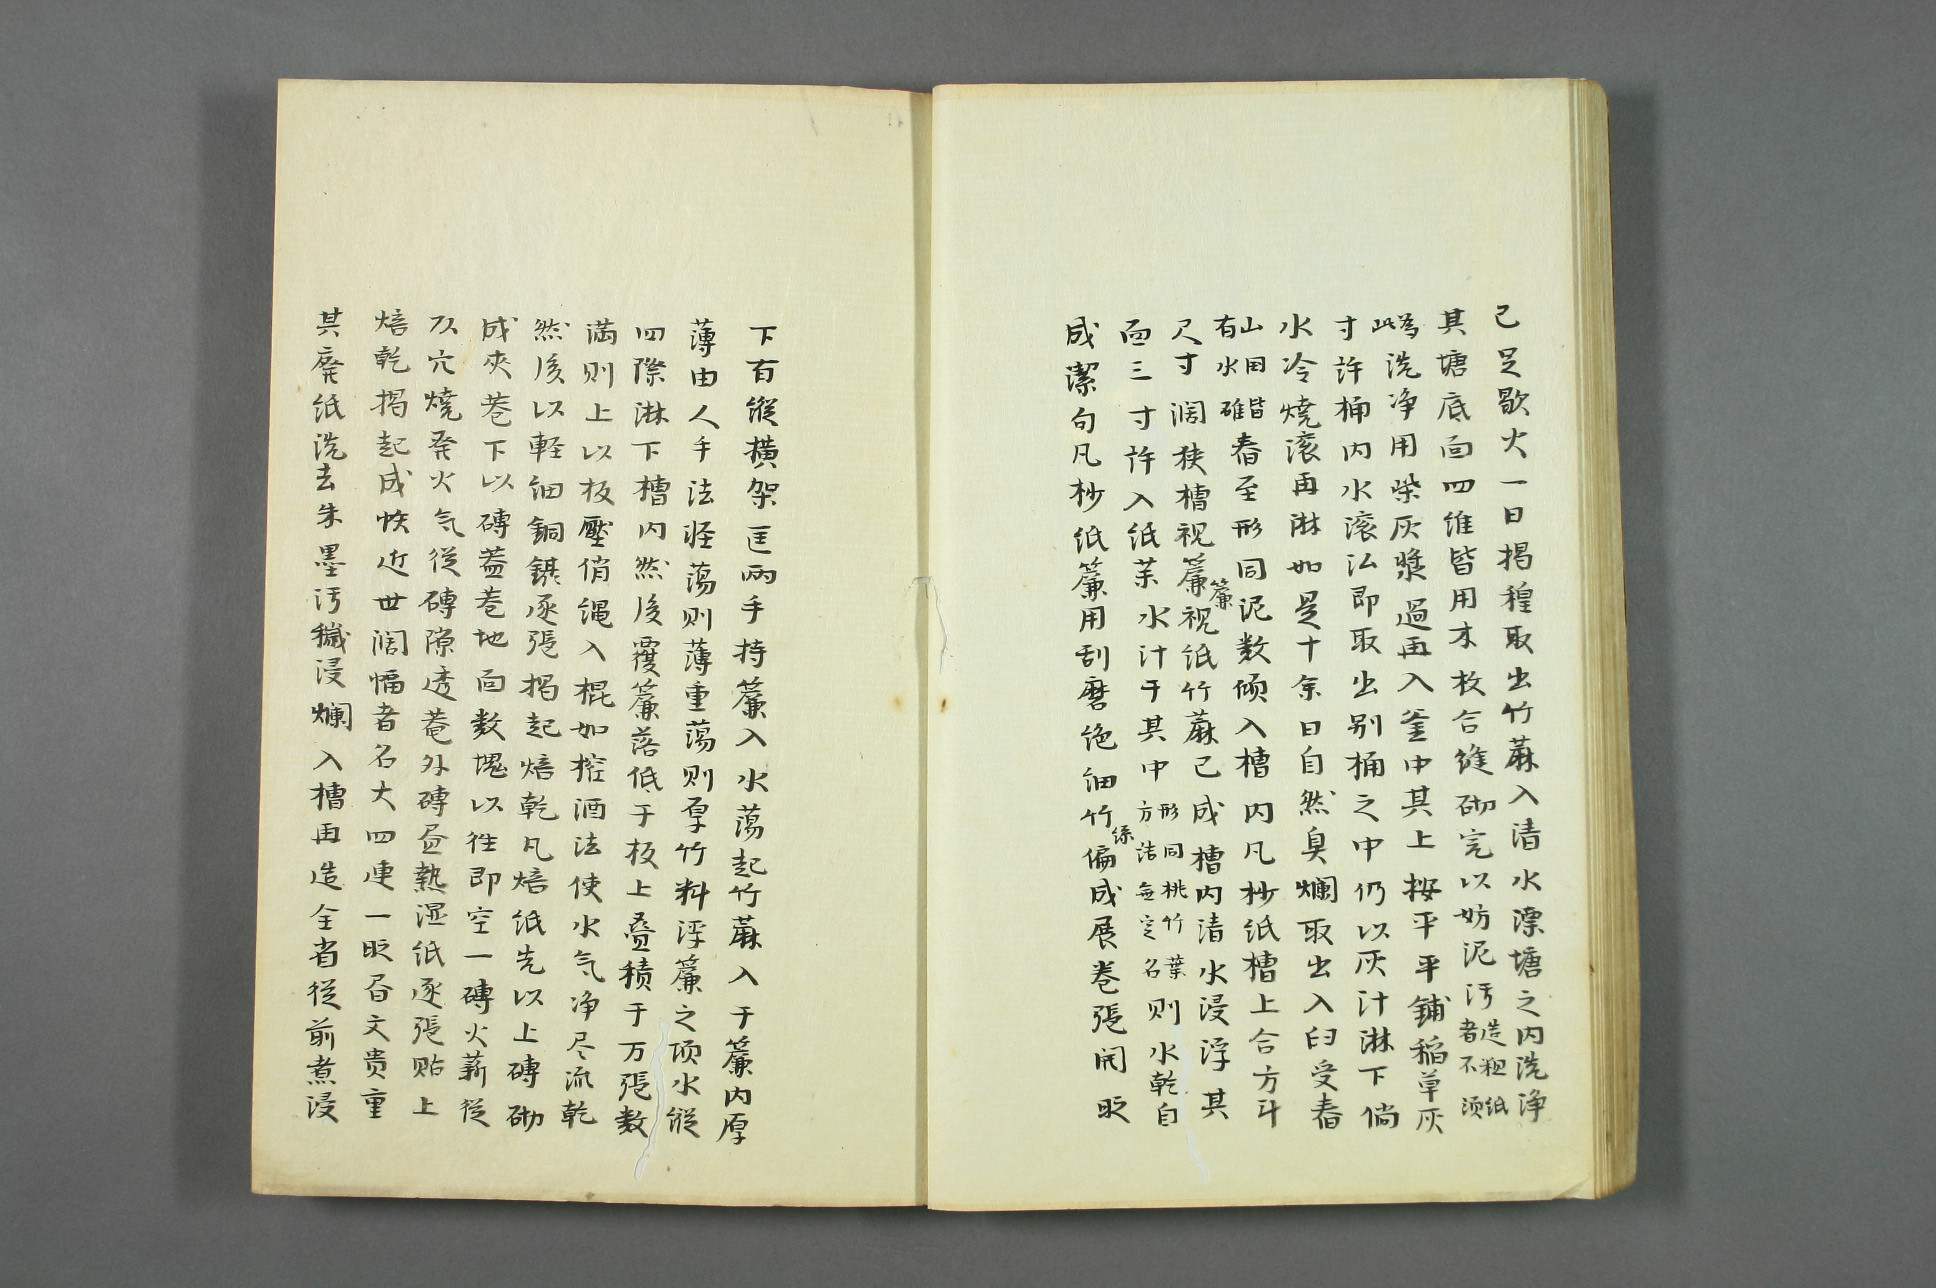 己足歇火一日揭楻取出竹蔴入清水漂塘之内洗净
其塘底面四維皆用木枚合縫砌完以妨泥汚造粗紙者不須
為此洗净用柴灰漿過再入釜中其上按平平鋪稲草灰
寸許桶内水滚沄即取出别桶之中仍以灰汁淋下倘
水冷燒滚再淋如是十余日自然臭爛取出入臼受舂
山国皆有水碓舂至形同泥数倾入槽内凡杪纸槽上合方斗
尺寸阔狭槽視簾簾視纸竹蔴已成槽内清水浸浮其
面三寸許入纸茉水汁于其中形同桃竹葉方法無定名则水乾自
成潔句凡杪纸簾用刮磨绝細竹絲偏成展卷張開眍
下有縱横架匡兩手持簾入水蕩起竹蔴入于簾内厚
薄由人手法轻蕩则薄重蕩则厚竹料浮簾之顷水縱
四際淋下槽内然後覆簾落低于板上叠積于万張数
满则上以板壓俏绳入棍如榨酒法使水气净尽流乾
然後以軽細銅鑷逐張揭起焙乾凡焙纸先以上磚砌
成夾巷下以磚蓋巷地面数塊以徃即空一磚火薪從
頭穴燒発火气從磚隙透菴外磚尽熱湿纸逐張贴上
焙乾揭起成帙近世阔幅者名大四連一眍昏文贵重
其廃纸洗去朱墨汚穢浸爛入槽再造全省從前煮浸